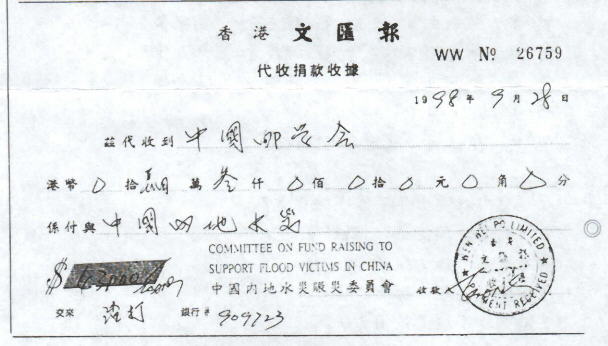 香港 文匯報
WW № 26759
代收捐款收據
1998年9月28日
茲代收到 中國印学会
港幣 0 拾 萬 叁 仟 0 佰 0 拾 0 元 0 角 0 分
係付與 中國内地水災
COMMITTEE ON FUND RAISING TO
SUPPORT FLOOD VICTIMS IN CHINA
中國內地水災賑災委員會
$
收款人
WEN WEI PO LIMITED
香港
文匯報
PAYMENT RECEIVED
交來 渣打 銀行# 909723